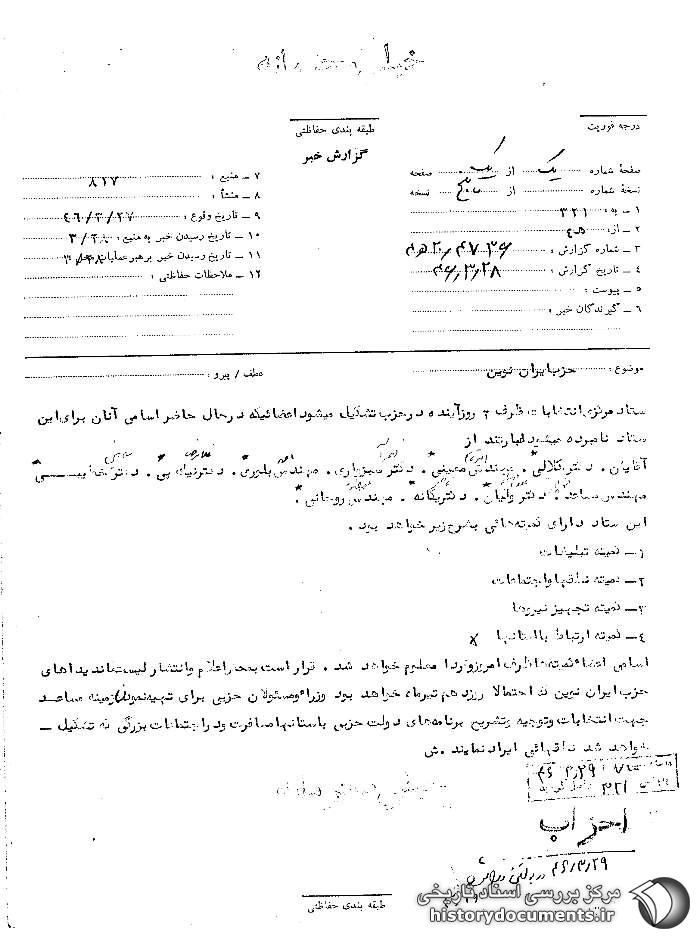 خیلی محرمانه
درجه فوریت
طبقه بندی حفاظتی
گزارش خبر
صفحهٔ شماره یک از یک صفحه
نسخهٔ شماره از پنج نسخه
۱ – به : ۳۲۱
۲ – از : ۲۰ ه‍
۳ – شماره گزارش : ۲۰ ه‍ ۲ / ۴۷۳۶
۴ – تاریخ گزارش : ۴۶/۳/۲۸
۵ – پیوست :
۶ – گیرندگان خبر :
۷ – منبع : ۸۱۷
۸ – منشأ :
۹ – تاریخ وقوع : ۴۶/۳/۲۷
۱۰ – تاریخ رسیدن خبر به منبع : ۳/۲۸
۱۱ – تاریخ رسیدن خبر برهبر عملیات
۱۲ – ملاحظات حفاظتی :
موضوع : حزب ایران نوین
عطف / پیرو :
ستاد مرکزی انتخابات ظرف ۲ روز آینده در حزب تشکیل میشود اعضائیکه در حال حاضر اسامی آنان برای این
ستاد نامبرده میشود عبارتند از
آقایان . دکتر کلالی . مهندس معینی . دکتر سبزواری . مهندس بلوری . دکتر ضیائی .
مهندس ساعد دکتر ولیان . دکتر یگانه . مهندس روحانی .
این ستاد دارای کمیته هائی بشرح زیر خواهد بود .
۱ – کمیته تبلیغات
۲ – کمیته نطقها و اجتماعات
۳ – کمیته تجهیز نیروها
۴ – کمیته ارتباط با استانها
اسامی اعضاء کمیته ها ظرف امروز و فردا معلوم خواهد شد . قرار است بمحض اعلام و انتشار لیست کاندیداهای
حزب ایران نوین که احتمالا روز دهم تیرماه خواهد بود وزراء و مسئولان حزبی برای تهیه نمودن زمینه مساعد
جهت انتخابات و توجیه و تشریح برنامه های دولت حزبی باستانها مسافرت و در اجتماعات بزرگی که تشکیل –
خواهد شد نطقهائی ایراد نمایند . ش
۴۶/۳/۲۹
۳۲۱
احزاب
۴۶/۳/۲۹
طبقه بندی حفاظتی
مرکز بررسی اسناد تاریخی
historydocuments.ir